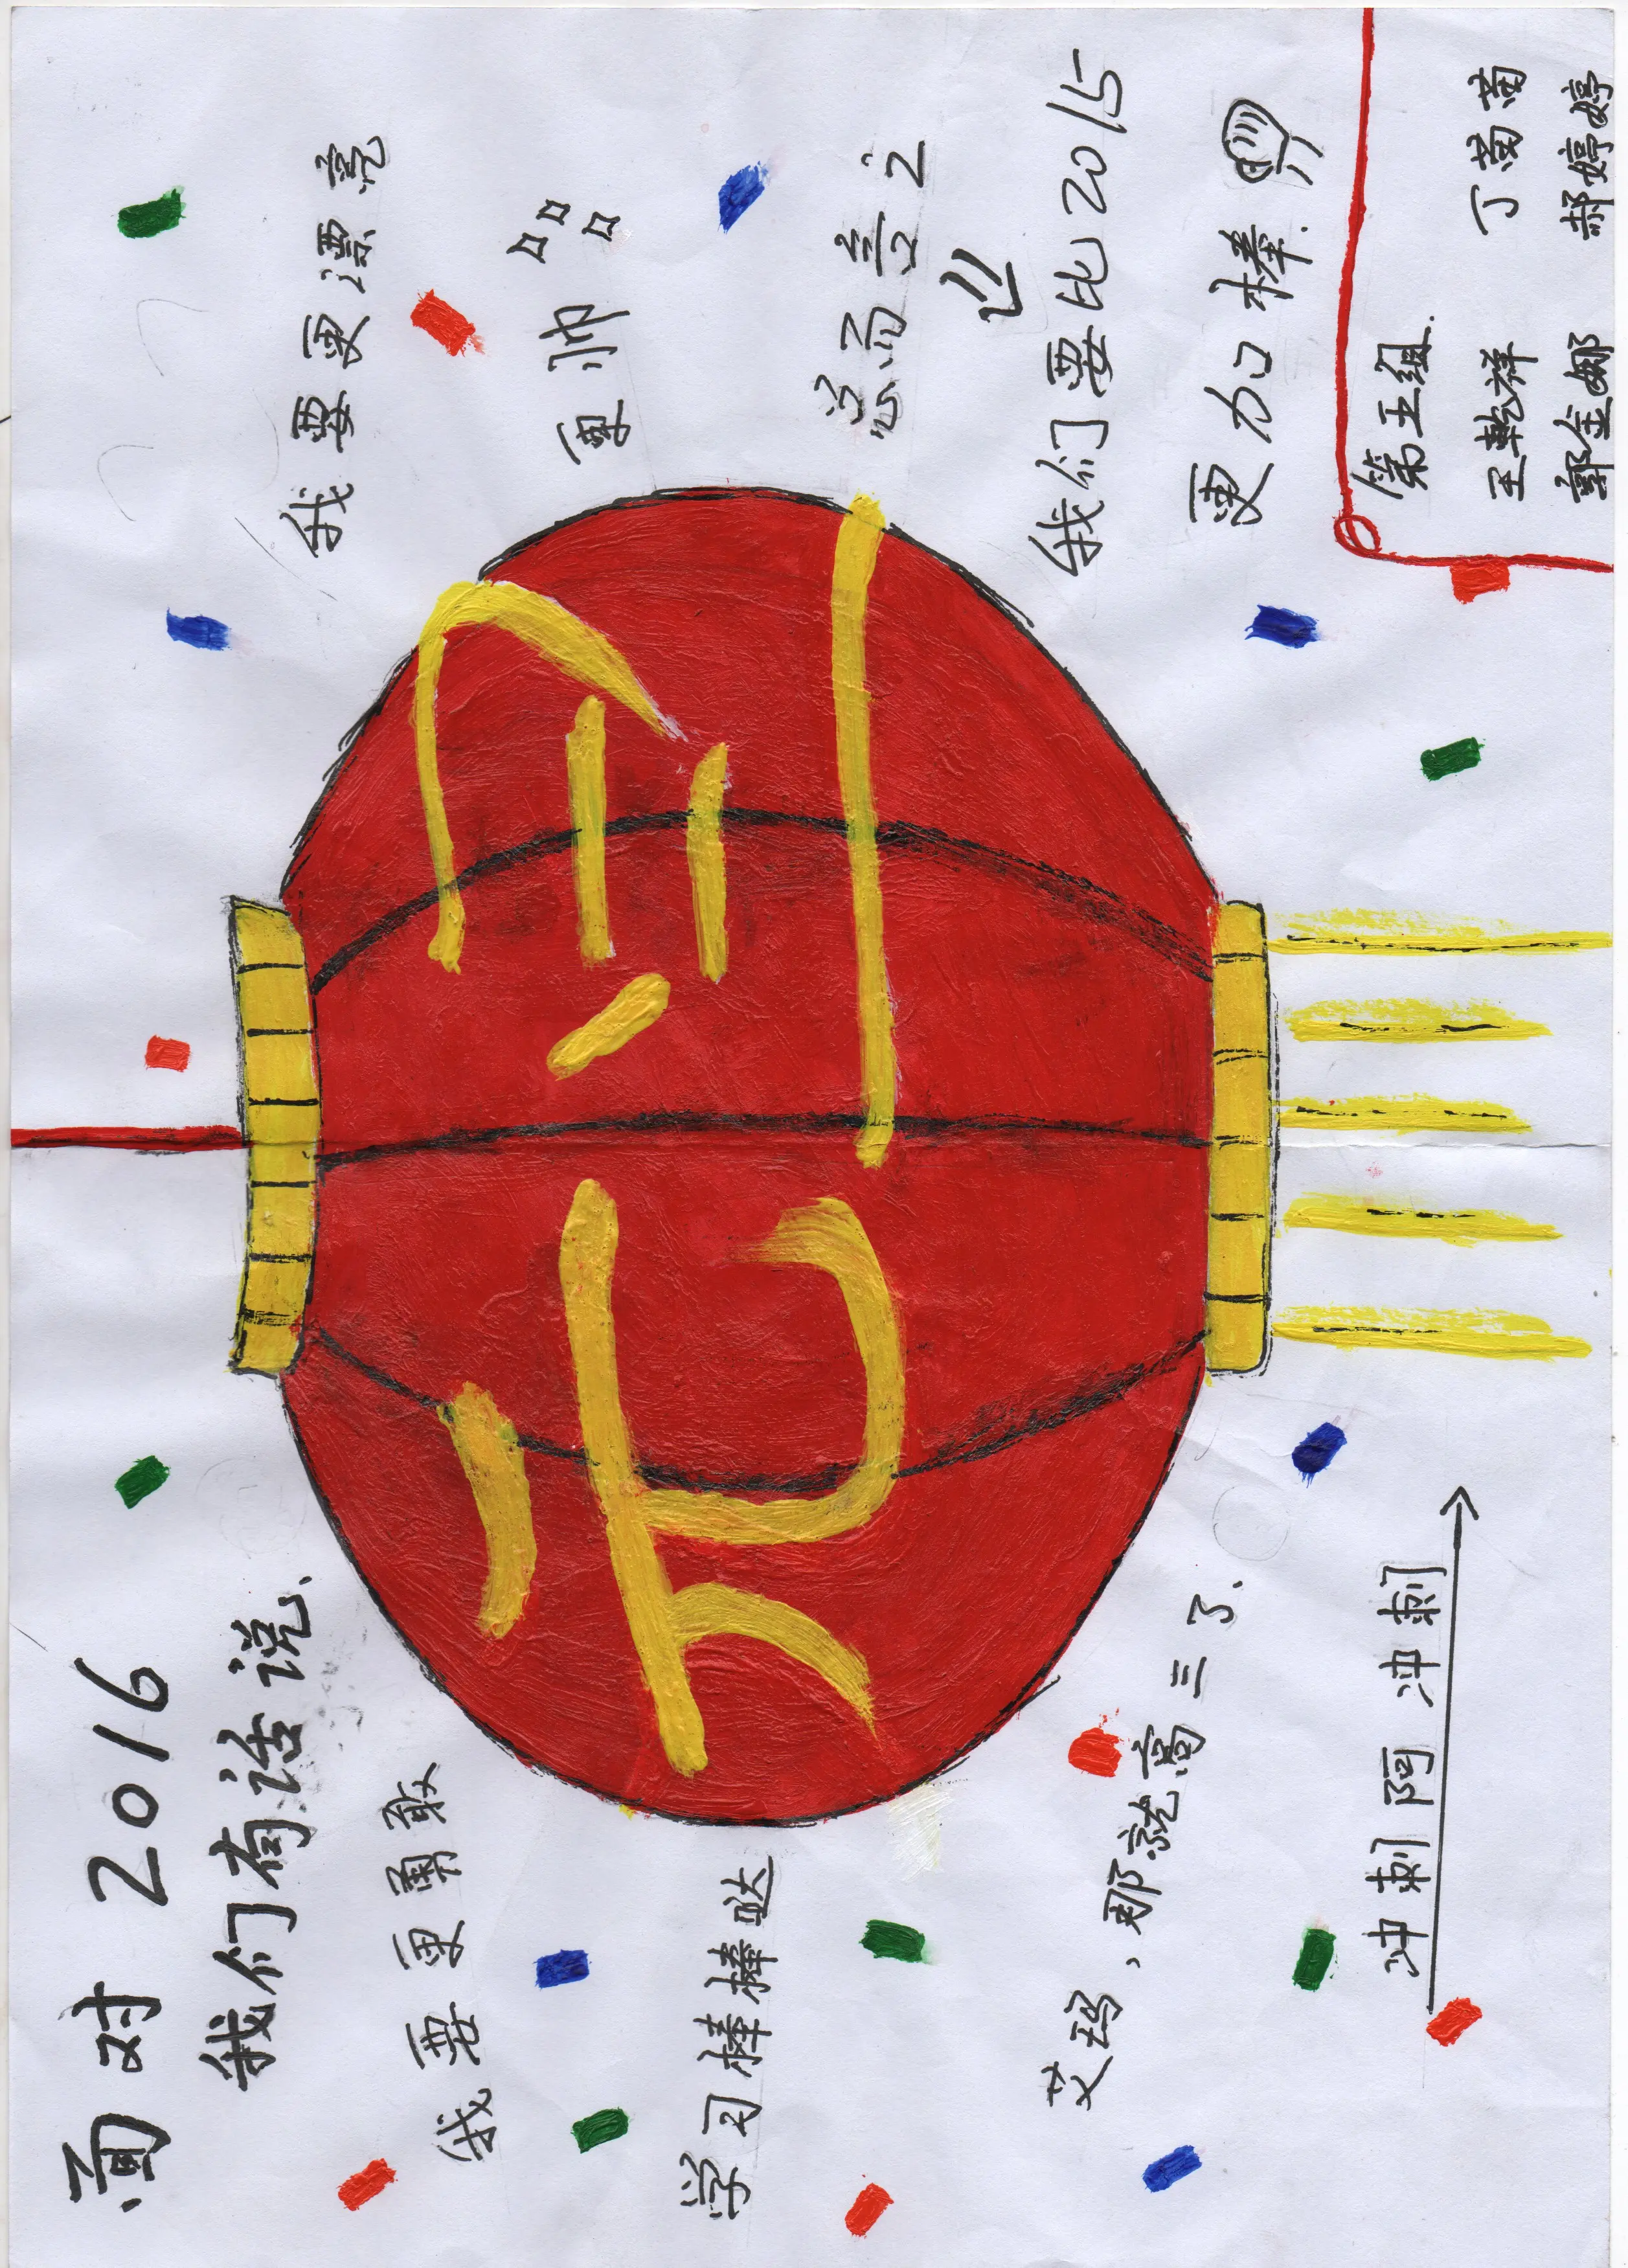 面对 2016
我们有话说.
我要更勇敢
学习棒棒哒
艾玛，那就高三了.
冲刺阿冲刺
元旦
我要更漂亮
更帅
总而言之
我们要比2015
更加棒.
第五组.
王乾祥 丁茵茵
郭金娜 郝婷婷